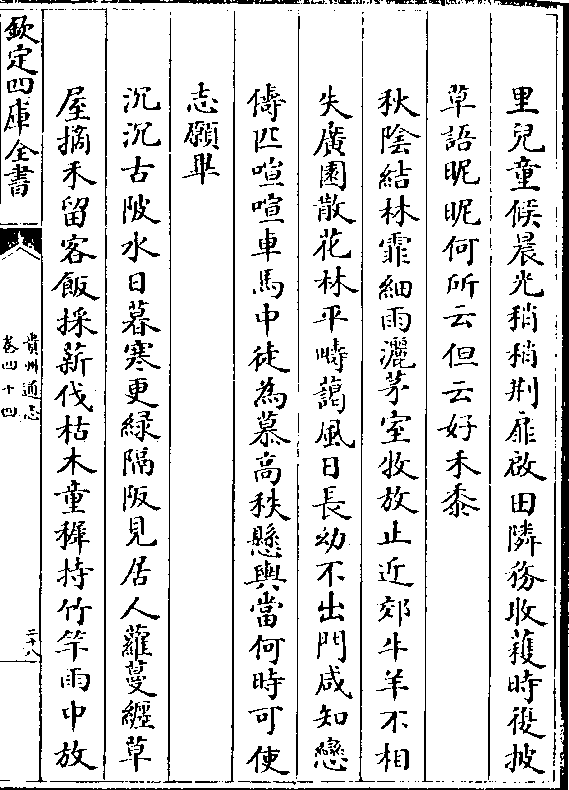 里兒童候晨光稍稍荆扉啟田隣務收穫時復披
草語昵昵何所云但云好禾黍
秋陰結林霏細雨灑茅室牧放止近郊牛羊不相
失廣園散花林平疇藹風日長幼不出門咸知戀
儔匹喧喧車馬中徒為慕高秩懸輿當何時可使
志願畢
沉沉古陂水日暮寒更緑隔阪見居人蘿蔓纏草
屋摘禾留客飯採薪伐枯木童穉持竹竿雨中放
欽定四庫全書
貴州通志
卷四十四
二十八